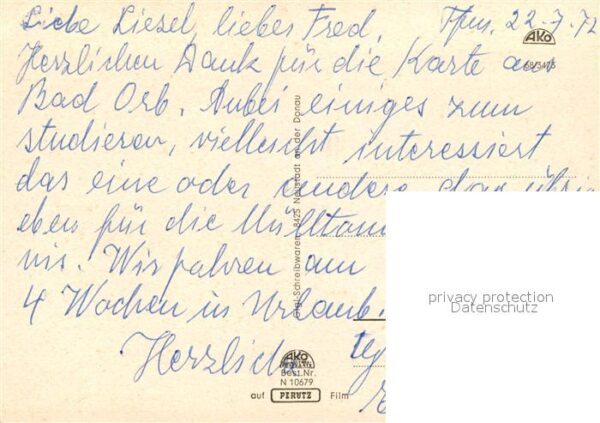 Liebe Liesel, liebes Fred, 22-7-72
Herzlichen Dank für die Karte aus
Bad Orb. Anbei einiges zum
studieren, vielleicht interessiert
das eine oder andere, das übri
eben für die Mülltonn
Wir fahren am
4 Wochen in Urlaub.
Herzlich
AKO
Digl-Schreibwaren, 8425 Neustadt an der Donau
privacy protection
Datenschutz
AKO
Best.Nr.
N 10679
auf PERUTZ Film